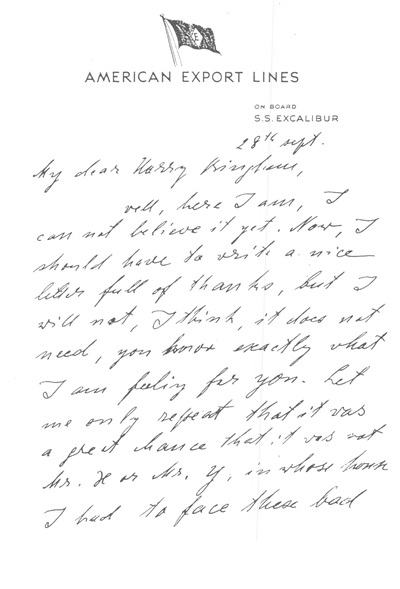 AMERICAN EXPORT LINES
ON BOARD
S.S. EXCALIBUR
28th sept.
My dear Harry Bingham,
well, here I am, I
can not believe it yet. Now, I
should have to write a nice
letter full of thanks, but I
will not, I think, it does not
need, you know exactly what
I am feeling for you. Let
me only repeat that it was
a great chance that it was not
Mr. X or Mr. Y, in whose house
I had to face these bad